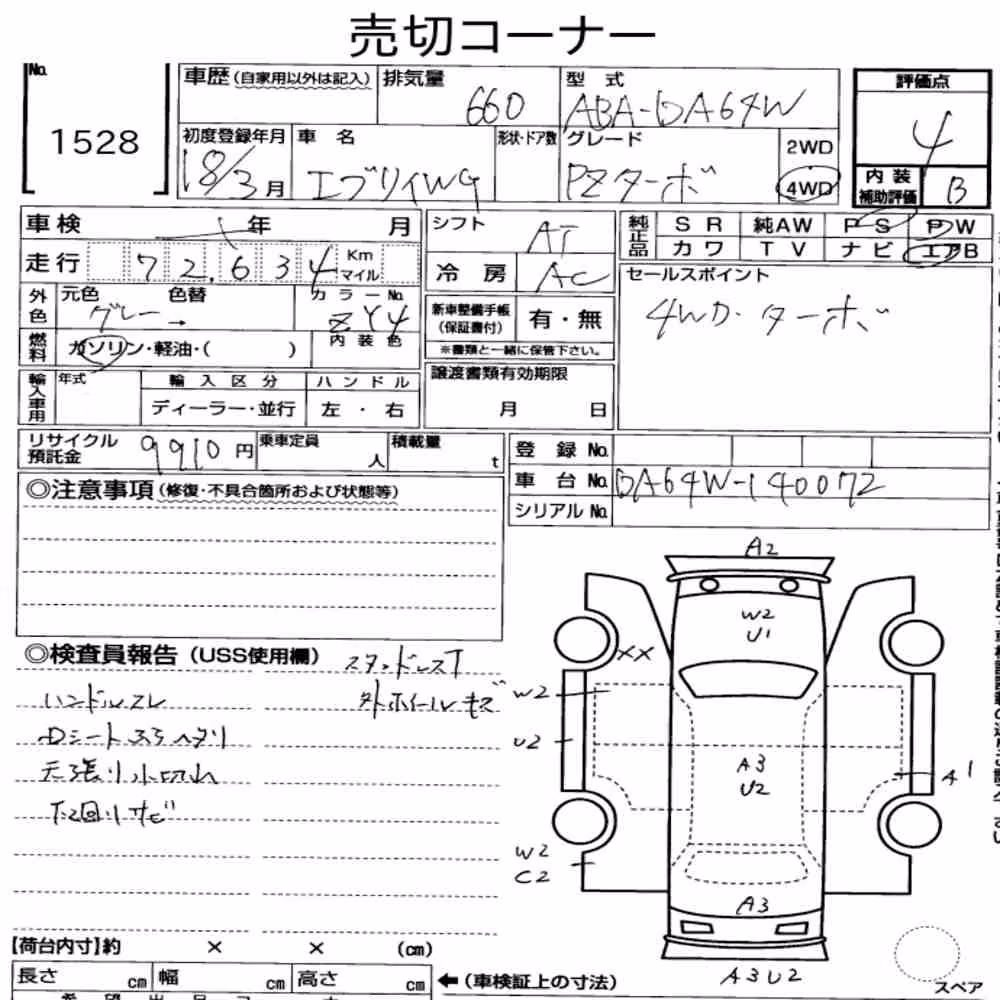 売切コーナー
No.
1528
車歴(自家用以外は記入)
排気量
660
型 式
ABA-DA64W
評価点
4
初度登録年月
18/3月
車 名
エブリイWG
形状・ドア数
グレード
PZターボ
2WD
4WD
内装
補助評価
B
車検
年
月
シフト
AT
純正品
SR
純AW
PS
PW
カワ
TV
ナビ
エアB
走行
72,634
Km
マイル
冷 房
AC
セールスポイント
4WD・ターボ
外色
元色
グレー
色替
カラーNo.
ZY4
新車整備手帳
(保証書付)
有・無
※書類と一緒に保管下さい。
燃料
ガソリン・軽油・( )
内装色
輸入車用
年式
輸入区分
ディーラー・並行
ハンドル
左・右
譲渡書類有効期限
月 日
リサイクル
預託金
9910円
乗車定員
人
積載量
t
登 録 No.
車 台 No.
DA64W-140072
シリアル No.
◎注意事項(修復・不具合箇所および状態等)
◎検査員報告(USS使用欄)
スタッドレスT
ハンドルスレ
外ホイールキズ
Dシート
ヘタリ
天張り小切れ
下回りサビ
A2
W2
U1
XX
W2
U2
A3
U2
A1
W2
C2
A3
A3U2
スペア
【荷台内寸】約 × × (cm)
長さ cm
幅 cm
高さ cm
←(車検証上の寸法)